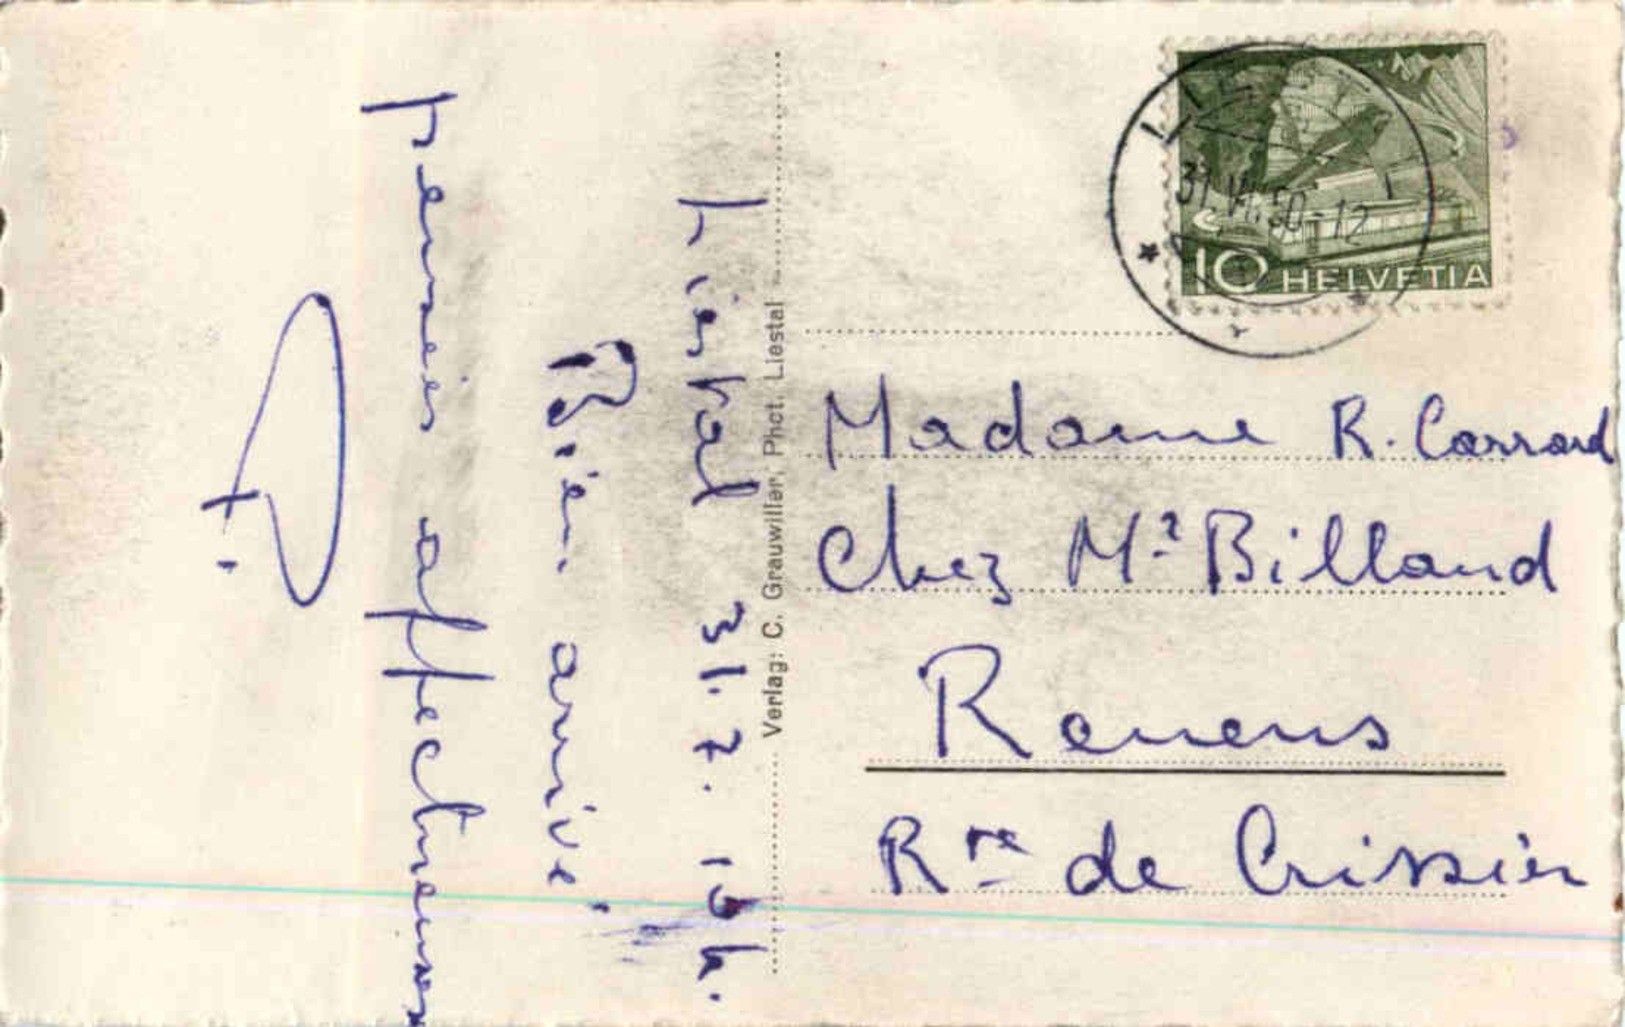 Liestal 31.7. 10h.
Bien arrivé.
Pensées affectueuses
Verlag: C. Grauwiller, Phot. Liestal
31.VII.50-12
10 HELVETIA
Madame R. Carrard
Chez Mr Billaud
Renens
Rte de Crissier